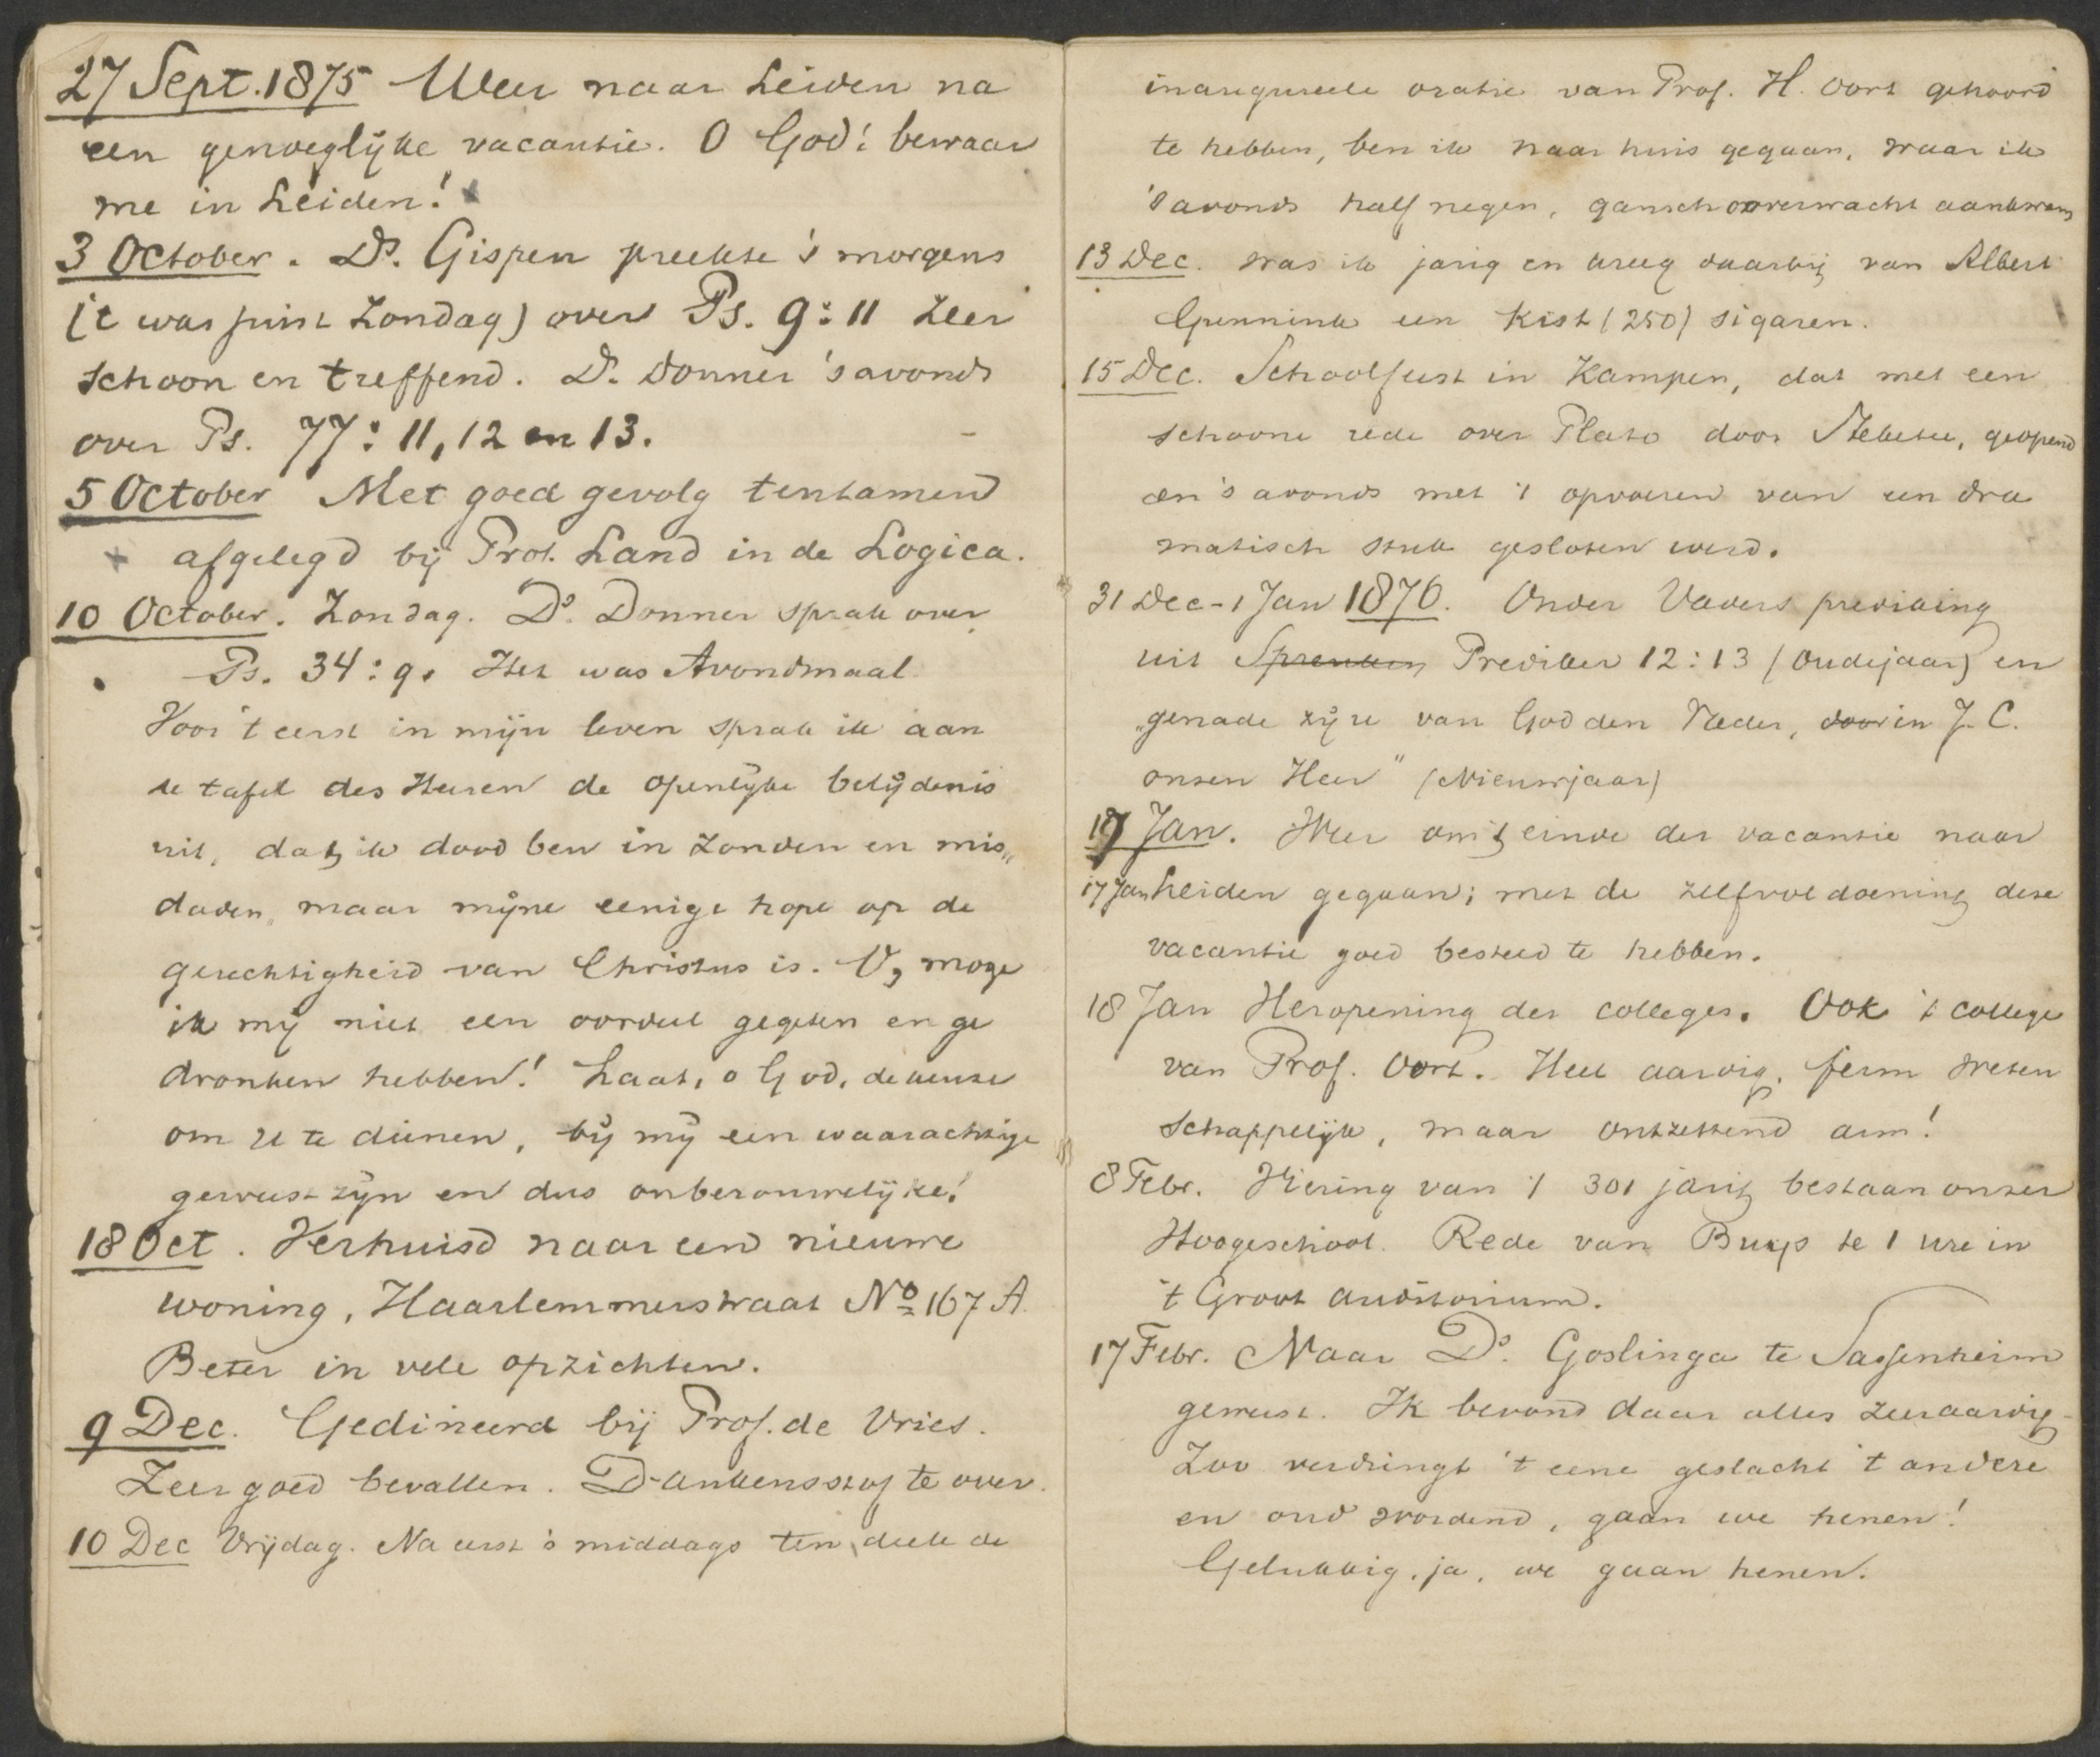 27 Sept. 1875 Weer naar Leiden na
een genoeglijke vacantie. O God! bewaar
me in Leiden!
3 October. Ds. Gispen preekte 's morgens
('t was juist Zondag) over Ps. 9:11 zeer
schoon en treffend. Ds. Donner 's avonds
over Ps. 77: 11, 12 en 13.
5 October Met goed gevolg tentamen
afgelegd bij Prof. Land in de Logica.
10 October. Zondag. Ds. Donner sprak over
Ps. 34:9. Het was Avondmaal.
Voor 't eerst in mijn leven sprak ik aan
de tafel des Heeren de openlijke belijdenis
uit, dat ik dood ben in zonden en mis„
daden, maar mijne eenige hope op de
gerechtigheid van Christus is. O, moge
ik mij niet een oordeel gegeten en ge
dronken hebben! Laat, o God, de keuze
om U te dienen, bij mij een waarachtige
geweest zijn en dus onberouwelijke!
18 Oct. Verhuisd naar een nieuwe
woning, Haarlemmerstraat No 167 A.
Beter in vele opzichten.
9 Dec. Gedineerd bij Prof. de Vries.
Zeer goed bevallen. Dankensstof te over.
10 Dec Vrijdag. Na eerst 's middags ten deele de
inaugureele oratie van Prof. H. Oort gehoord
te hebben, ben ik naar huis gegaan, waar ik
's avonds half negen, gansch onverwacht aankwam
13 Dec. was ik jarig en kreeg daarbij van Albert
Gunnink een kist (250) sigaren.
15 Dec. Schoolfeest in Kampen, dat met een
schoone rede over Plato door Steketee, geopend
en 's avonds met 't opvoeren van een dra
matisch stuk gesloten werd.
31 Dec - 1 Jan 1876. Onder Vaders prediking
uit Spreuken Prediker 12:13 (Oudejaar) en
„genade zij u van God den Vader, door in J. C.
onzen Heer" (Nieuwjaar)
17 Jan. Weer om 't einde der vacantie naar
17 Jan Leiden gegaan; met de zelfvoldoening deze
vacantie goed besteed te hebben.
18 Jan Heropening der colleges. Ook 't college
van Prof. Oort. Heel aardig, ferm weten
schappelijk, maar ontzettend arm!
8 Febr. Viering van 't 301 jarig bestaan onzer
Hoogeschool. Rede van Buys te 1 ure in
't Groot Auditorium.
17 Febr. Naar Ds. Goslinga te Sassenheim
geweest. Ik bevond daar alles zeer aardig.
Zoo verdringt 't eene geslacht 't andere
en oud wordend, gaan we henen!
Gelukkig, ja, we gaan henen.